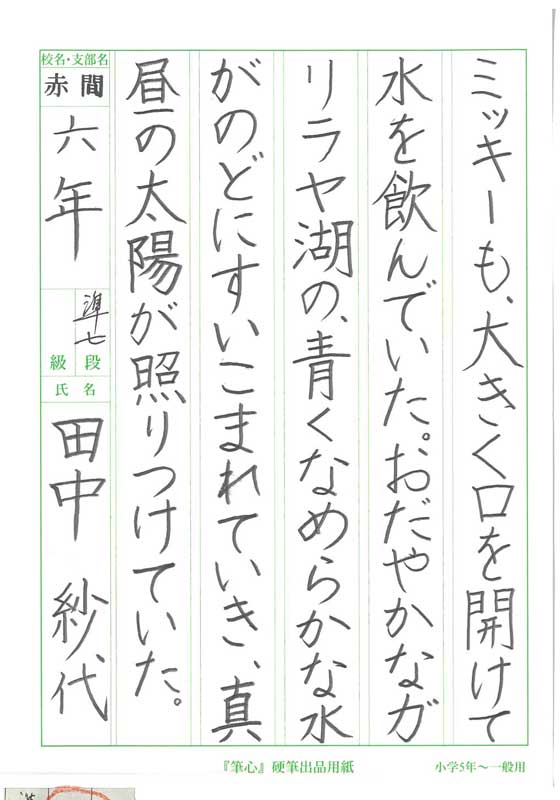 ミッキーも、大きく口を開けて
水を飲んでいた。おだやかなガ
リラヤ湖の、青くなめらかな水
がのどにすいこまれていき、真
昼の太陽が照りつけていた。
校名・支部名
赤間
六年
準七
級段
氏名
田中 紗代
『筆心』硬筆出品用紙
小学5年～一般用